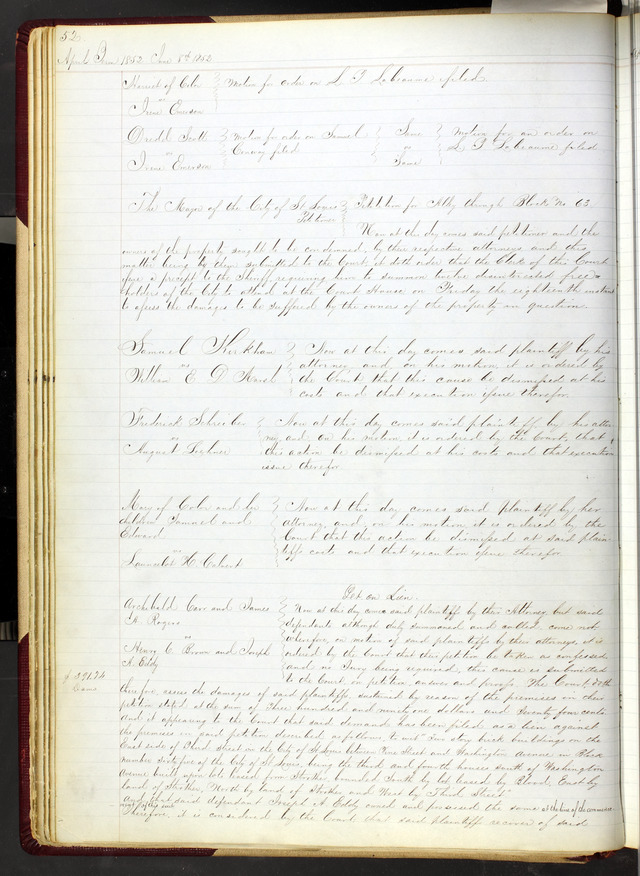 52
April Term 1852 Jan 5th 1852
Harriet of Color } Motion for order on L T Labeaume filed.
vs
Irene Emerson
Dred Scott } Motion for order on Samuel } Same } Motion for an order on
vs Conway filed vs L T Labeaume filed
Irene Emerson Same
The Mayor of the City of St Louis } Petition for Alley through Block No 63
Petitioner
Now at this day comes said petitioner and the
owners of the property sought to be condemned, by their respective attorneys and this
matter being by they submitted to the Court, it doth order that the Clerk of this Court
issue a precept to the Sheriff requiring him to summon twelve disinterested free
holders of the City to attend at the Court House on Friday the eighteenth instant
to assess the damages to be suffered by the owners of the property in question.
Samuel Kirkham } Now at this day comes said plaintiff by his
vs attorney, and on his motion, it is ordered by
William E D the Court that this cause be dismissed at his
costs and that execution issue therefor.
Frederick Schreiber } Now at this day comes said plaintiff by his attor
vs ney, and on his motion it is ordered by the Court, that
August this action be dismissed at his costs and that execution
issue therefor
Mary of Color and her } Now at this day comes said plaintiff by her
children Samuel and attorney, and on her motion it is ordered by the
Edward Court that this action be dismissed at said plain
vs tiffs costs and that execution issue therefor.
Launcelot H. Calvert
Pet on Lien.
Archibald Carr and James } Now at this day comes said plaintiff by their Attorney but said
A. Rogers defendants although duly summoned and called come not
vs wherefore, on motion of said plaintiffs by their attorney, it is
Henry C. Brown and Joseph ordered by the Court that their petition be taken as confessed
A. Eddy and no Jury being required, this cause is submitted
$ 391.24 to the Court on petition, answer and proofs. The Court, doth
Same
therefore, assess the damages of said plaintiffs sustained by reason of the premises in their
petition stated at the sum of Three hundred and ninety one dollars and twenty four cents.
And it appearing to the Court that said demand has been filed as a lien against
the premises in said petition described as follows to wit "Two story brick buildings on the
East side of Third Street in the City of St Louis between Vine Street and Washington Avenue in Block
number sixty five of the City of St Louis, being the third and fourth houses south of Washington
Avenue built upon lots leased from Strother bounded South by lot leased by Blood, East by
land of Strother, North by land of Strother and West by Third Street"
And that said defendant Joseph A Eddy owned and possessed the same at the time of the commence
ment of this suit
Therefore, it is considered by the Court that said plaintiff recover of said